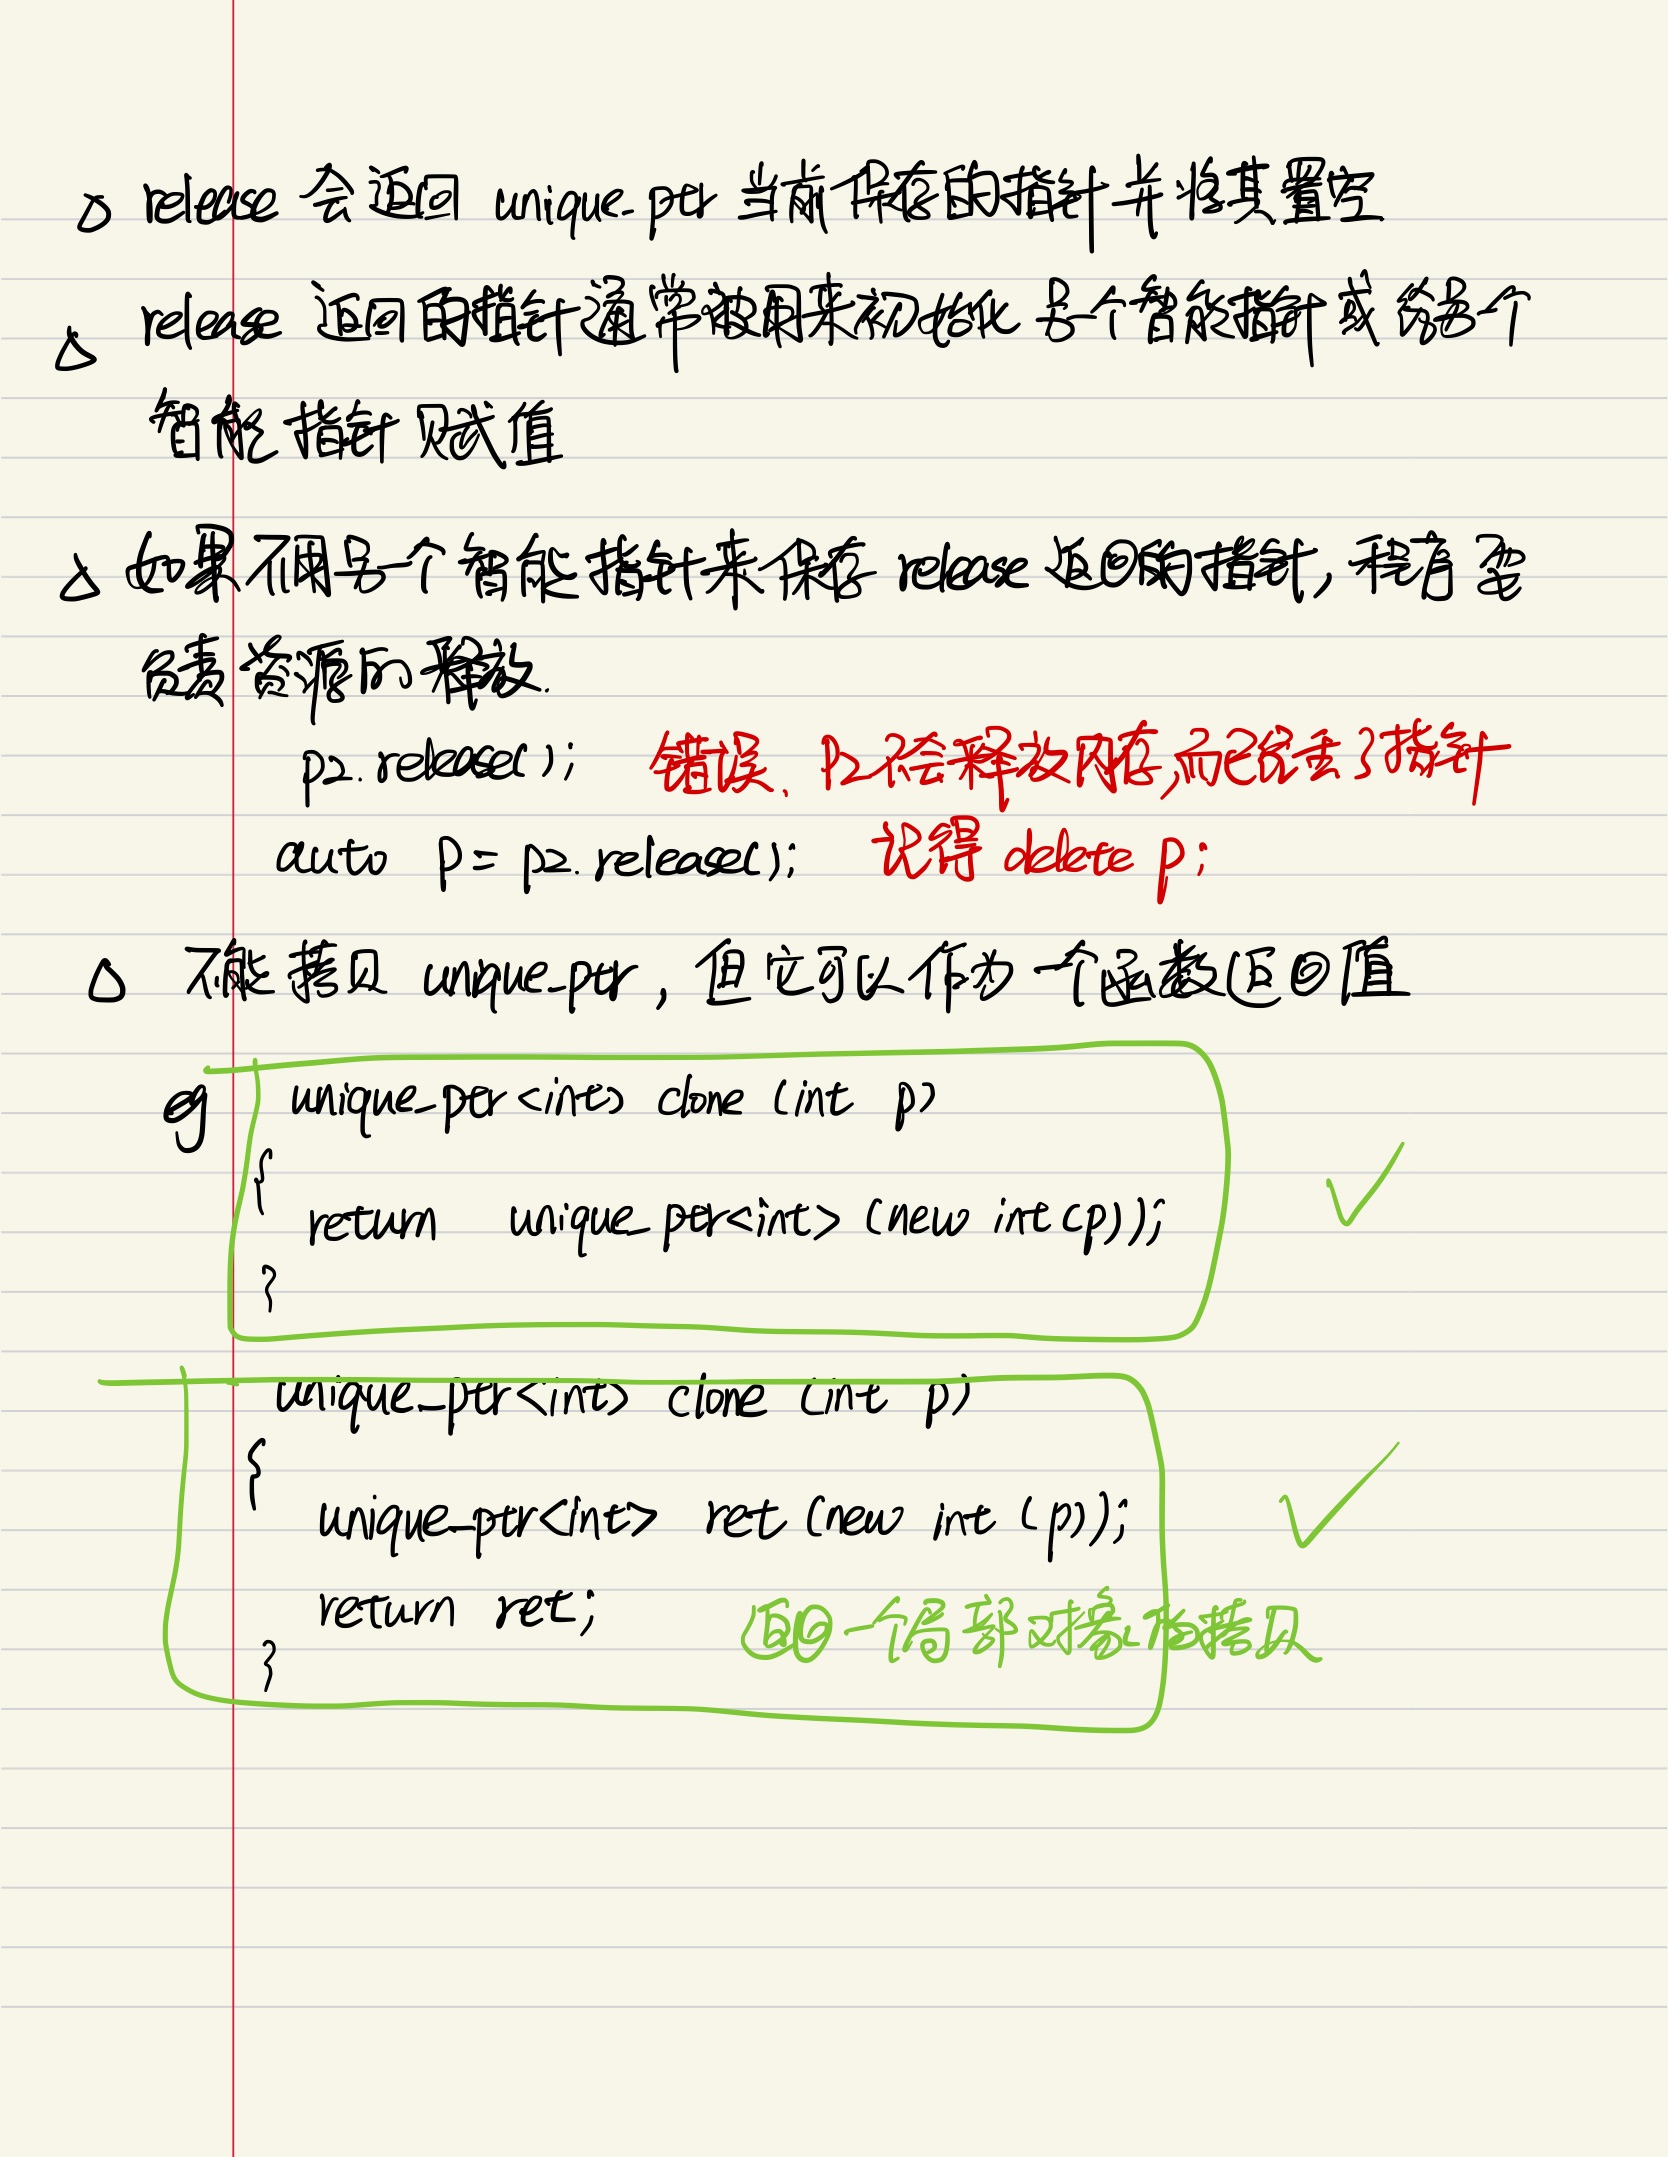 △ release 会返回 unique_ptr 当前保存的指针并将其置空
△ release 返回的指针通常被用来初始化另一个智能指针或给另个
智能指针赋值
△ 如果不用另一个智能指针来保存 release 返回的指针,程序要
负责资源的释放.
p2.release(); 错误、p2不会释放内存,而且丢了指针
auto p = p2.release(); 记得 delete p;
△ 不能拷贝 unique_ptr, 但它可以作为一个函数返回值
eg unique_ptr<int> clone (int p)
{
return unique_ptr<int> (new int(p));
}
unique_ptr<int> clone (int p)
{
unique_ptr<int> ret (new int (p));
return ret; 返回一个局部对象的拷贝
}